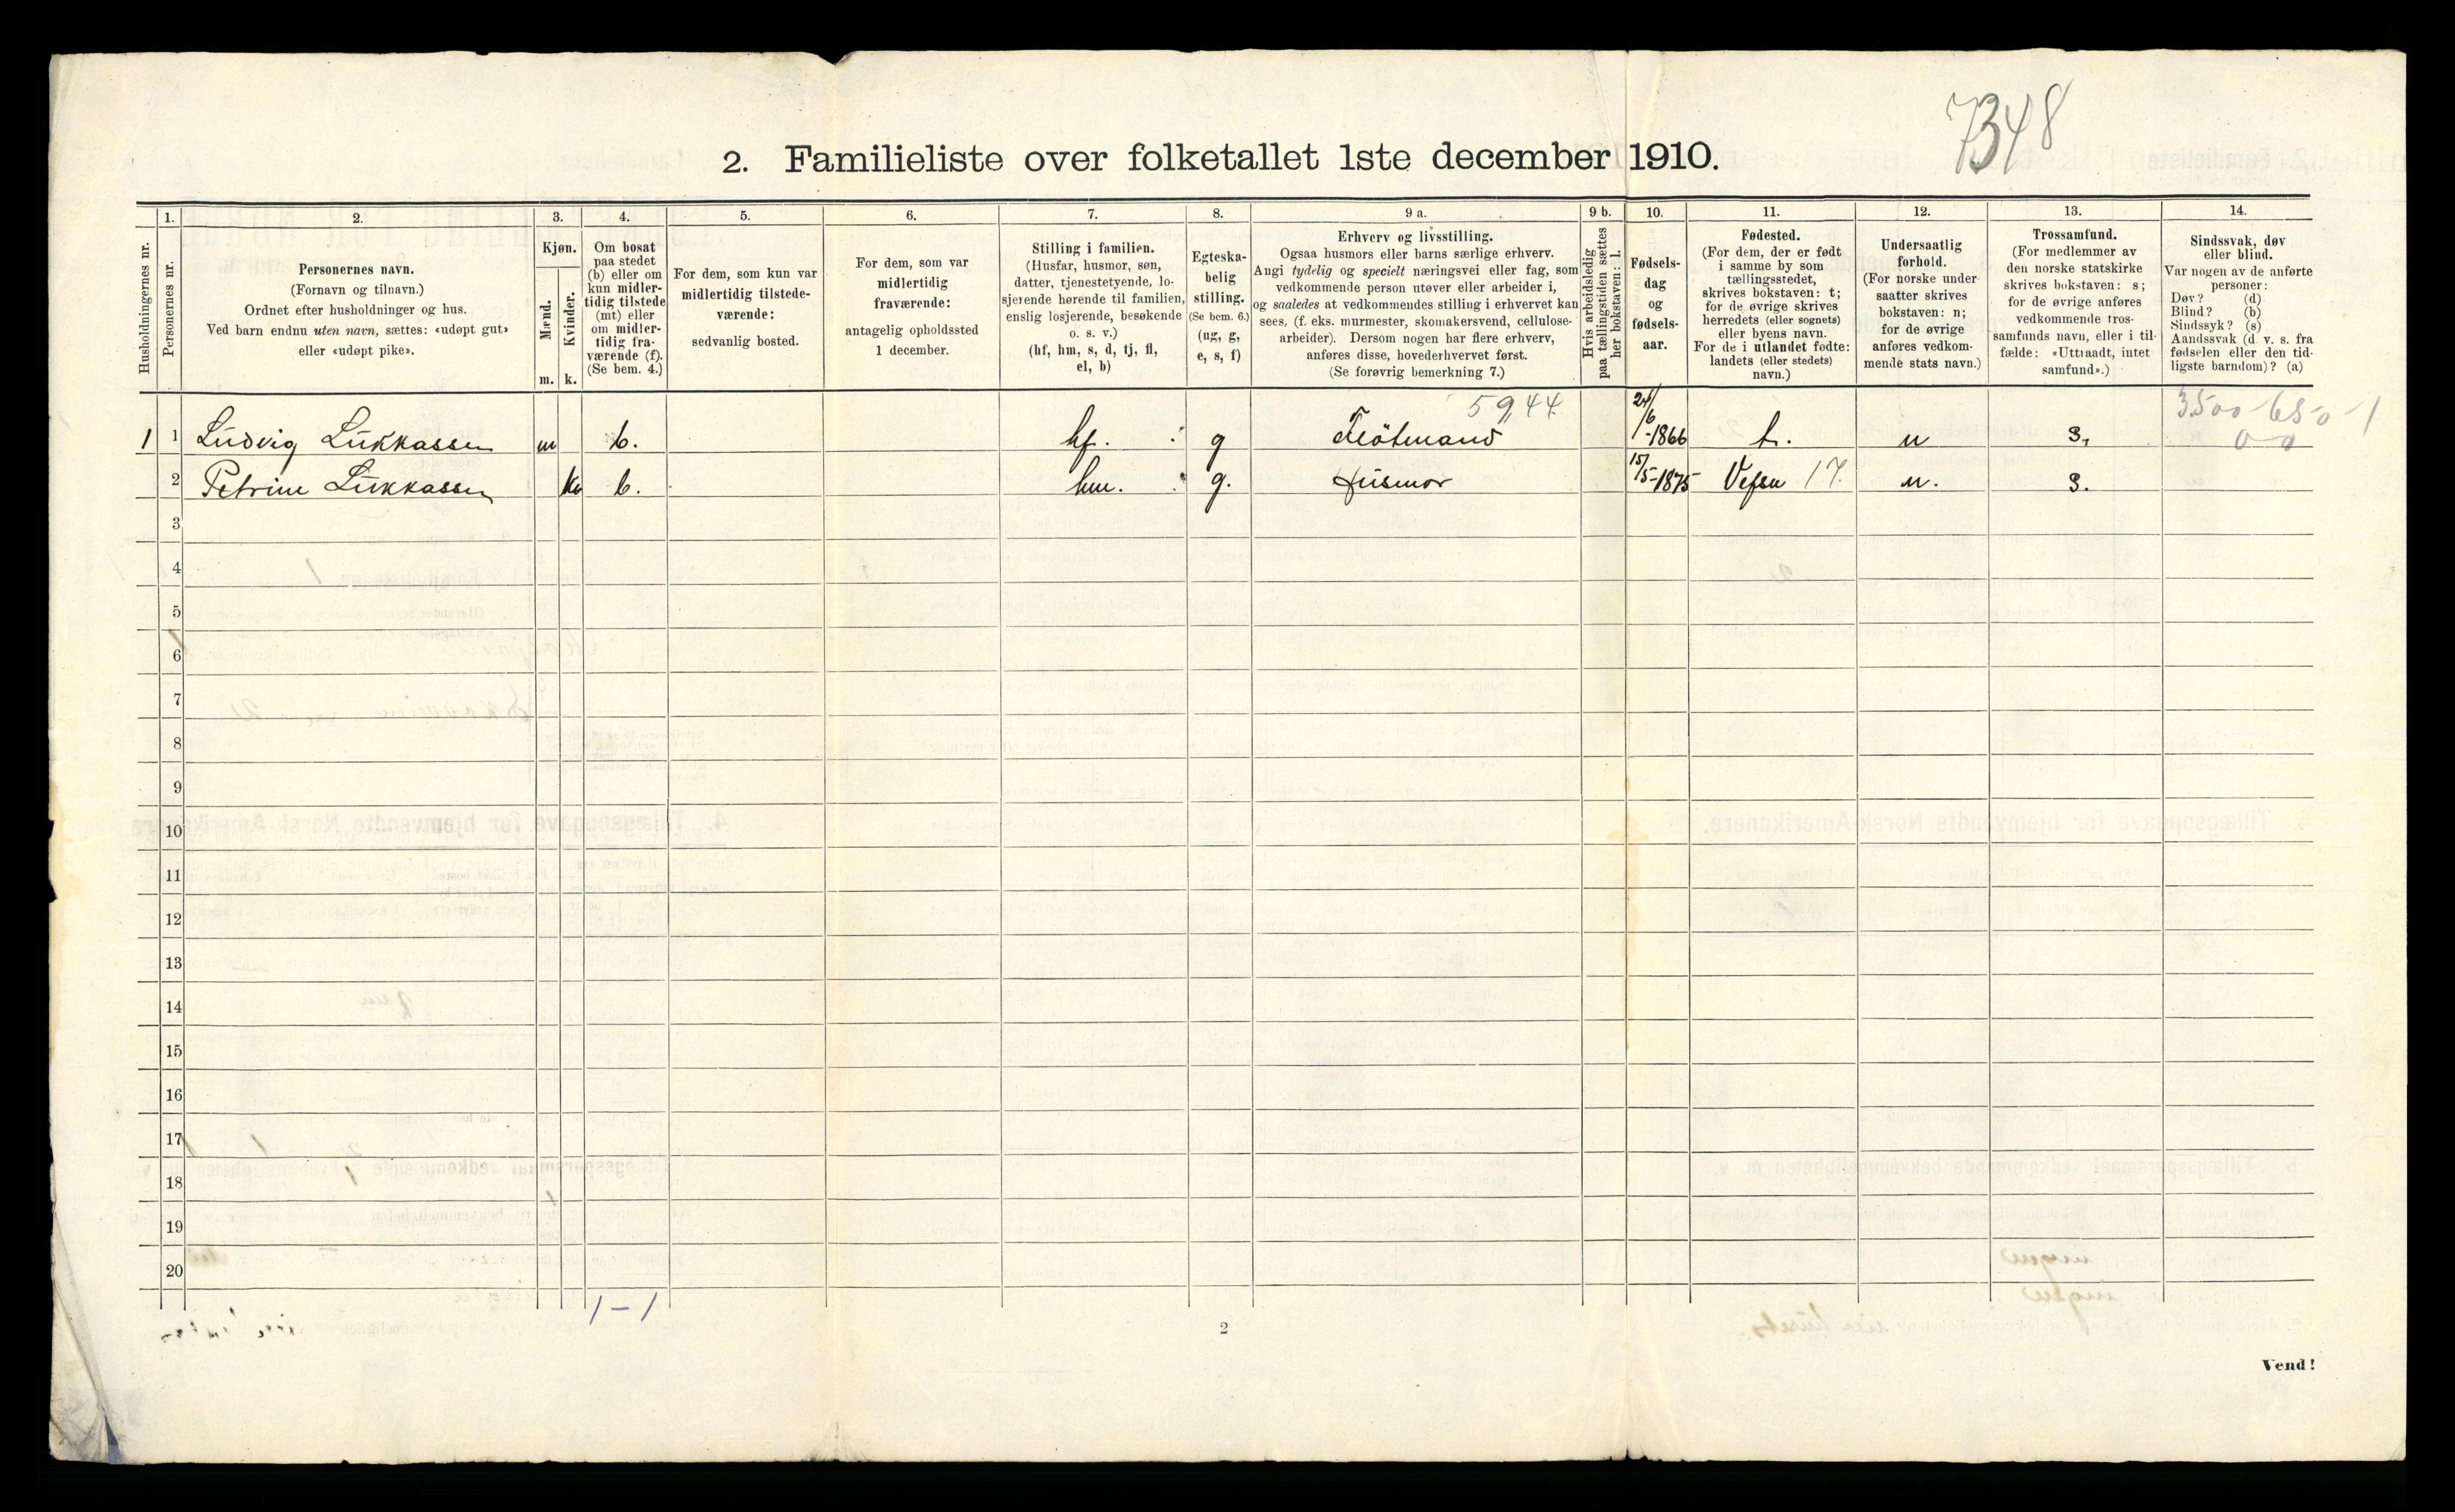 7348
2. Familieliste over folketallet 1ste december 1910.
Husholdningernes nr.
1.
Personernes nr.
2.
Personernes navn.
(Fornavn og tilnavn.)
Ordnet efter husholdninger og hus.
Ved barn endnu uten navn, sættes: «udøpt gut»
eller «udøpt pike».
3.
Kjøn.
Mænd.
Kvinder.
m. k.
4.
Om bosat
paa stedet
(b) eller om
kun midler-
tidig tilstede
(mt) eller
om midler-
tidig fra-
værende (f).
(Se bem. 4.)
5.
For dem, som kun var
midlertidig tilstede-
værende:
sedvanlig bosted.
6.
For dem, som var
midlertidig
fraværende:
antagelig opholdssted
1 december.
7.
Stilling i familien.
(Husfar, husmor, søn,
datter, tjenestetyende, lo-
sjerende hørende til familien,
enslig losjerende, besøkende
o. s. v.)
(hf, hm, s, d, tj, fl,
el, b)
8.
Egteska-
belig
stilling.
(Se bem. 6.)
(ug, g,
e, s, f)
9 a.
Erhverv og livsstilling.
Ogsaa husmors eller barns særlige erhverv.
Angi tydelig og specielt næringsvei eller fag, som
vedkommende person utøver eller arbeider i,
og saaledes at vedkommendes stilling i erhvervet kan
sees, (f. eks. murmester, skomakersvend, cellulose-
arbeider). Dersom nogen har flere erhverv,
anføres disse, hovederhvervet først.
(Se forøvrig bemerkning 7.)
9 b.
Hvis arbeidsledig
paa tællingstiden sættes
her bokstaven: l.
10.
Fødsels-
dag
og
fødsels-
aar.
11.
Fødested.
(For dem, der er født
i samme by som
tællingsstedet,
skrives bokstaven: t;
for de øvrige skrives
herredets (eller sognets)
eller byens navn.
For de i utlandet fødte:
landets (eller stedets)
navn.)
12.
Undersaatlig
forhold.
(For norske under-
saatter skrives
bokstaven: n;
for de øvrige
anføres vedkom-
mende stats navn.)
13.
Trossamfund.
(For medlemmer av
den norske statskirke
skrives bokstaven: s;
for de øvrige anføres
vedkommende tros-
samfunds navn, eller i til-
fælde: «Uttraadt, intet
samfund».)
14.
Sindssvak, døv
eller blind.
Var nogen av de anførte
personer:
Døv? (d)
Blind? (b)
Sindssyk? (s)
Aandssvak (d. v. s. fra
fødselen eller den tid-
ligste barndom)? (a)
5944 3500-650-1
1 1 Ludvig Lukkassen m b. hf. g Fløtmand 24/6-1866 t. n s. 0-0
2 Petrine Lukkassen k b. hm. g. Husmor 15/5-1875 Vefsn 17. n. s.
3
4
5
6
7
8
9
10
11
12
13
14
15
16
17
18
19
20
1-1
2
Vend!